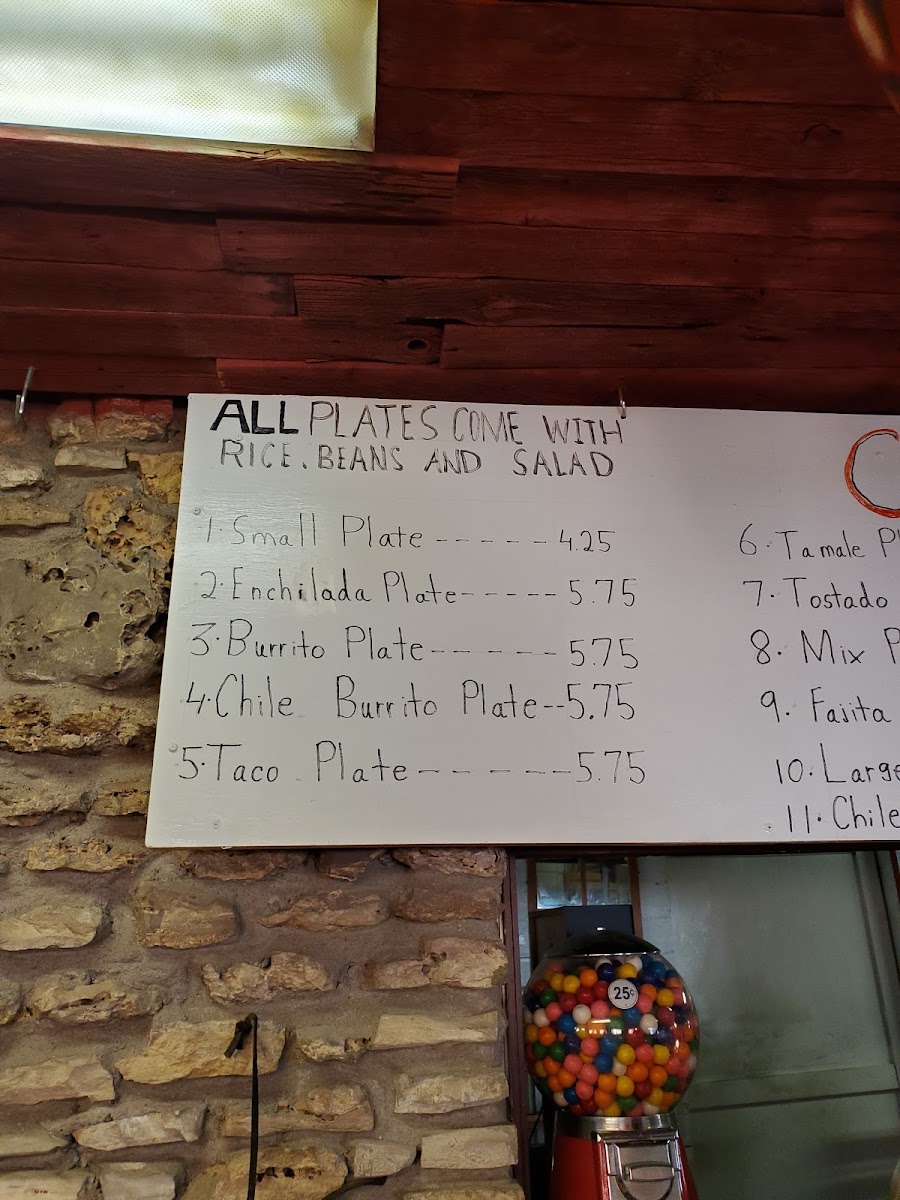 ALL PLATES COME WITH
RICE. BEANS AND SALAD
1. Small Plate ----- 4.25
2. Enchilada Plate ----- 5.75
3. Burrito Plate ------ 5.75
4. Chile Burrito Plate -- 5.75
5. Taco Plate ------ 5.75
C
6. Tamale Pl
7. Tostado
8. Mix P
9. Fajita
10. Large
11. Chile
25¢